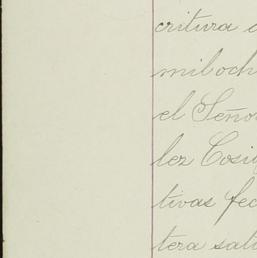 critura
mil och
el Seño
lez Cosi
tivas fec
tera sati